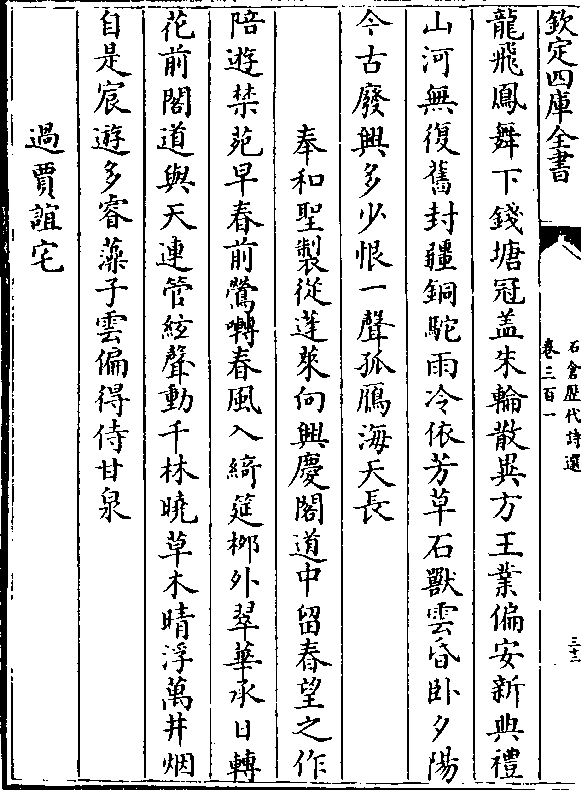 欽定四庫全書
石倉歴代詩選
卷三百一
三十二
龍飛鳳舞下錢塘冠盖朱輪散異方王業偏安新典禮
山河無復舊封疆銅駝雨冷依芳草石獸雲昏卧夕陽
今古廢興多少恨一聲孤鴈海天長
奉和聖製從蓬萊向興慶閣道中留春望之作
陪遊禁苑早春前鶯囀春風入綺筵栁外翠華承日轉
花前閣道與天連管絃聲動千林曉草木晴浮萬井烟
自是宸遊多睿藻子雲偏得侍甘泉
過賈誼宅